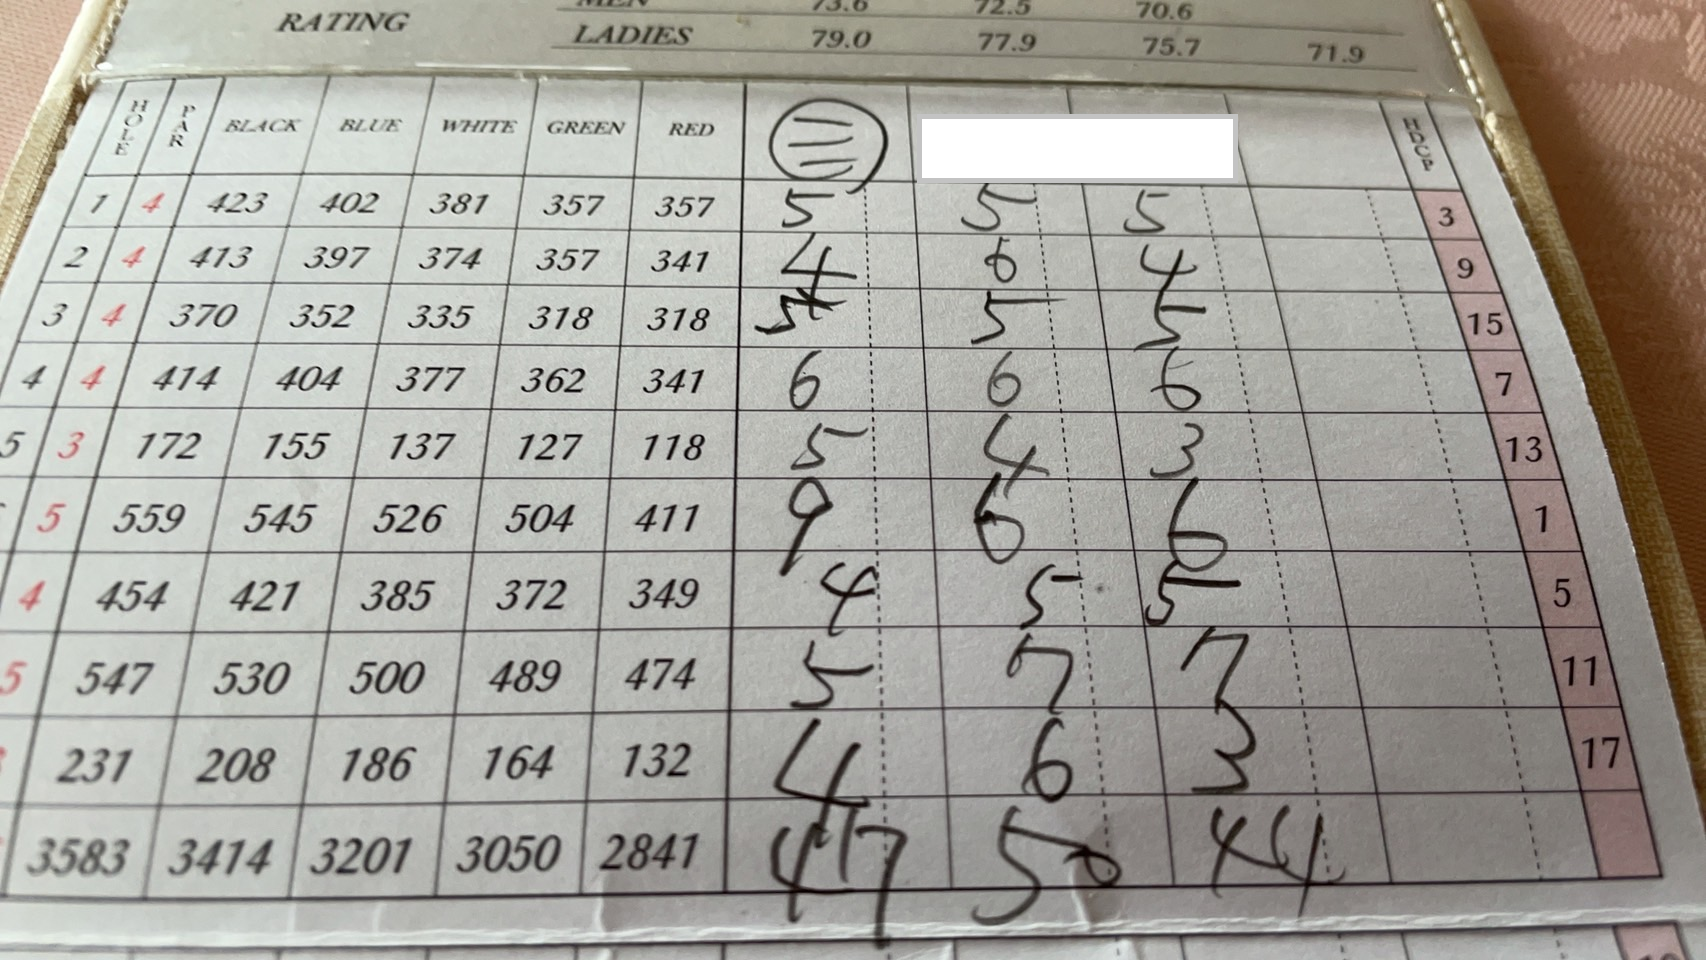 MEN 73.6 72.5 70.6
RATING
LADIES 79.0 77.9 75.7 71.9
HOLE PAR BLACK BLUE WHITE GREEN RED 三 HDCP
1 4 423 402 381 357 357 5 5 5 3
2 4 413 397 374 357 341 4 6 4 9
3 4 370 352 335 318 318 5 5 5 15
4 4 414 404 377 362 341 6 6 6 7
5 3 172 155 137 127 118 5 4 3 13
5 559 545 526 504 411 9 6 6 1
4 454 421 385 372 349 4 5 5 5
5 547 530 500 489 474 5 7 7 11
231 208 186 164 132 4 6 3 17
3583 3414 3201 3050 2841 47 50 44